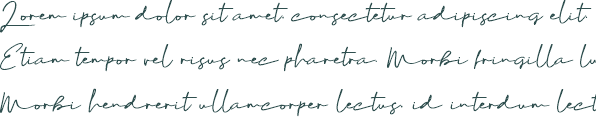 Lorem ipsum dolor sit amet, consectetur adipiscing elit.
Etiam tempor vel risus nec pharetra. Morbi fringilla lu
Morbi hendrerit ullamcorper lectus, id interdum lect